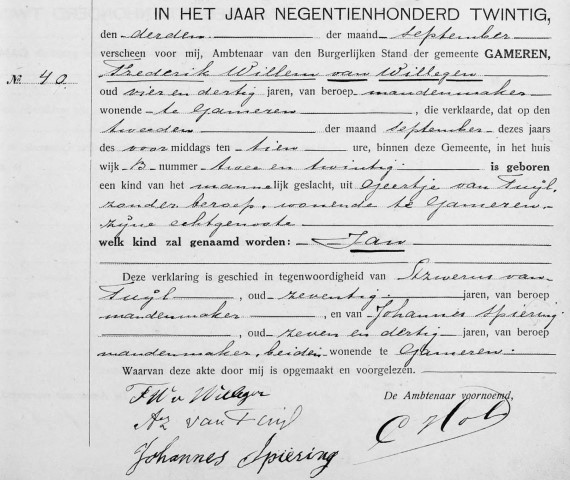 IN HET JAAR NEGENTIENHONDERD TWINTIG,
den derden der maand september
verscheen voor mij, Ambtenaar van den Burgerlijken Stand der gemeente GAMEREN,
No. 40. Frederik Willem van Willegen
oud vier en dertig jaren, van beroep mandenmaker
wonende te Gameren, die verklaarde, dat op den
tweeden der maand september dezes jaars
des voormiddags ten tien ure, binnen deze Gemeente, in het huis
wijk B nummer twee en twintig: is geboren
een kind van het mannelijk geslacht, uit Geertje van Tuijl,
zonder beroep, wonende te Gameren,
zijne echtgenoote
welk kind zal genaamd worden: Jan
Deze verklaring is geschied in tegenwoordigheid van van
Tuijl, oud zeventig jaren, van beroep
mandenmaker, en van Johannes Spiering
, oud zeven en dertig jaren, van beroep
mandenmaker, beiden wonende te Gameren.
Waarvan deze akte door mij is opgemaakt en voorgelezen.
De Ambtenaar voornoemd,
F W v Willegen
van Tuijl
Johannes Spiering